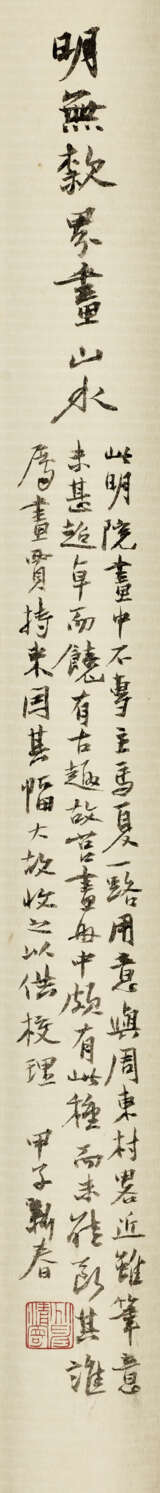 明無款界畫山水
此明院畫中不專主馬夏一路用意與周東村畧近雖筆意
未甚超卓而饒有古趣故宮畫中頗有此種而未能斷其誰
屬畫賈持來因其幅大故收之以供校理 甲子新春